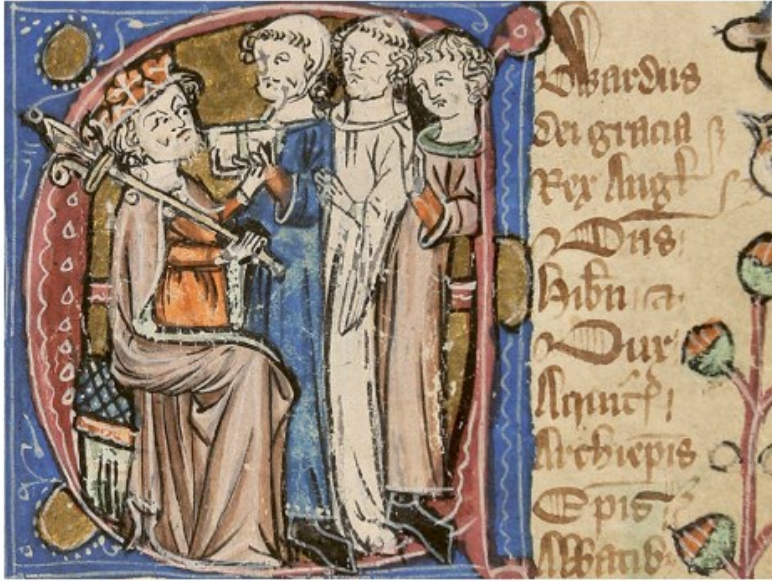 Edwardus
dei gracia
Rex Angl
Dns
hibn ⁊
Dux
Aquit
Archiepis
Epis
Abbatib